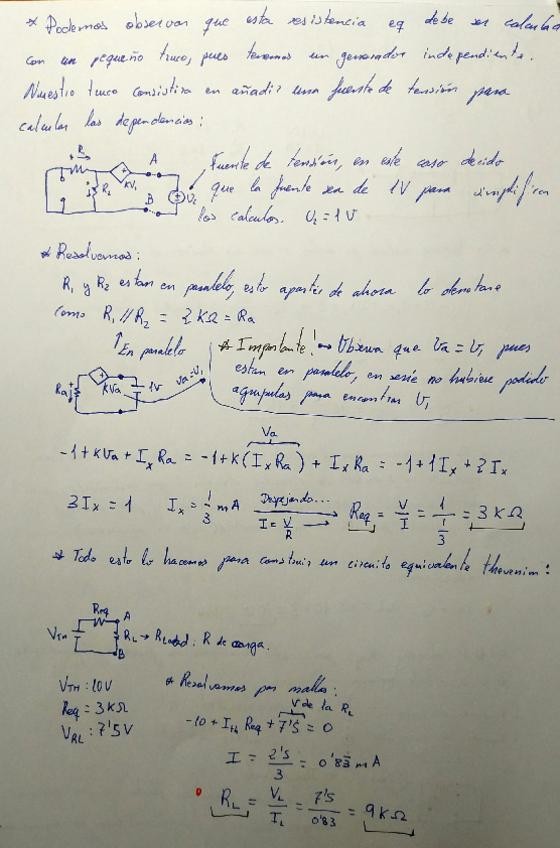 * Podemos observar que esta resistencia eq debe ser calculada
con un pequeño truco, pues tenemos un generador independiente.
Nuestro truco consistira en añadir una fuente de tensión para
calcular las dependencias:
R
A
Fuente de tensión, en este caso decido
KV₁
B
que la fuente sea de 1V para simplificar
los calculos. U₂ = 1V
* Resolvemos:
R₁ y R₂ estan en paralelo, esto apartir de ahora lo denotare
como R₁ // R₂ = 2KΩ = Ra
↑ En paralelo
* Importante! → Observa que Va = V₁ pues
estan en paralelo, en serie no hubiese podido
agruparlas para encontrar V₁
Ra
KVa
1V
Va=V₁
Va
-1 + KVa + Iₓ Ra = -1 + K(Iₓ Ra) + Iₓ Ra = -1 + 1Iₓ + 2Iₓ
3Iₓ = 1 Iₓ = 1/3 mA Despejando... I = V/R → Req = V/I = 1/(1/3) = 3KΩ
* Todo esto lo hacemos para construir un circuito equivalente thevenim:
Req
A
VTH
RL → RLoad: R de carga.
B
VTH: 10V
Req = 3KΩ
VRL: 7'5V
* Resolvemos por mallas:
V de la RL
-10 + ITH Req + 7'5 = 0
I = 2'5/3 = 0'83 mA
RL = VL/IL = 7'5/0'83 = 9KΩ